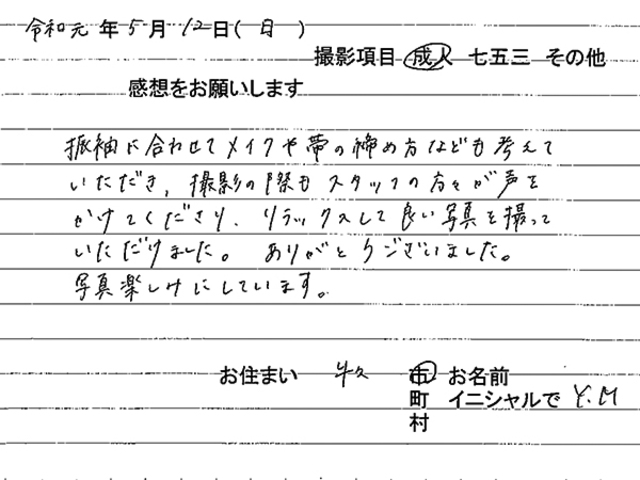 令和元年5月12日(日)
撮影項目 成人 七五三 その他
感想をお願いします
振袖に合わせてメイクや帯の締め方なども考えて
いただき、撮影の際もスタッフの方々が声を
かけてくださり、リラックスして良い写真を撮って
いただけました。ありがとうございました。
写真楽しみにしています。
お住まい 牛久 市 お名前
町 イニシャルで Y.M
村